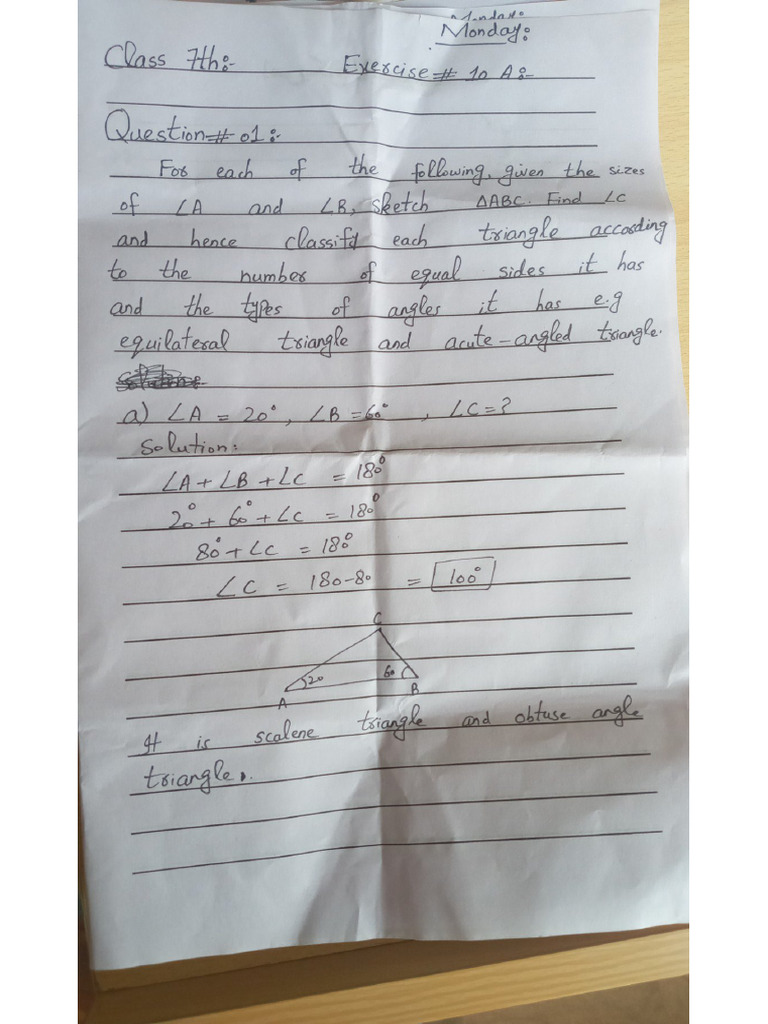 Monday:
Monday:
Class 7th:- Exercise# 10 A:-
Question# 01:-
For each of the following, given the sizes
of ∠A and ∠B, sketch △ABC. Find ∠C
and hence classify each triangle according
to the number of equal sides it has
and the types of angles it has e.g
equilateral triangle and acute-angled triangle.
a) ∠A = 20°, ∠B = 60°, ∠C = ?
Solution:
∠A + ∠B + ∠C = 180°
20° + 60° + ∠C = 180°
80° + ∠C = 180°
∠C = 180-80 = 100°
C
20 60
A B
It is scalene triangle and obtuse angle
triangle.